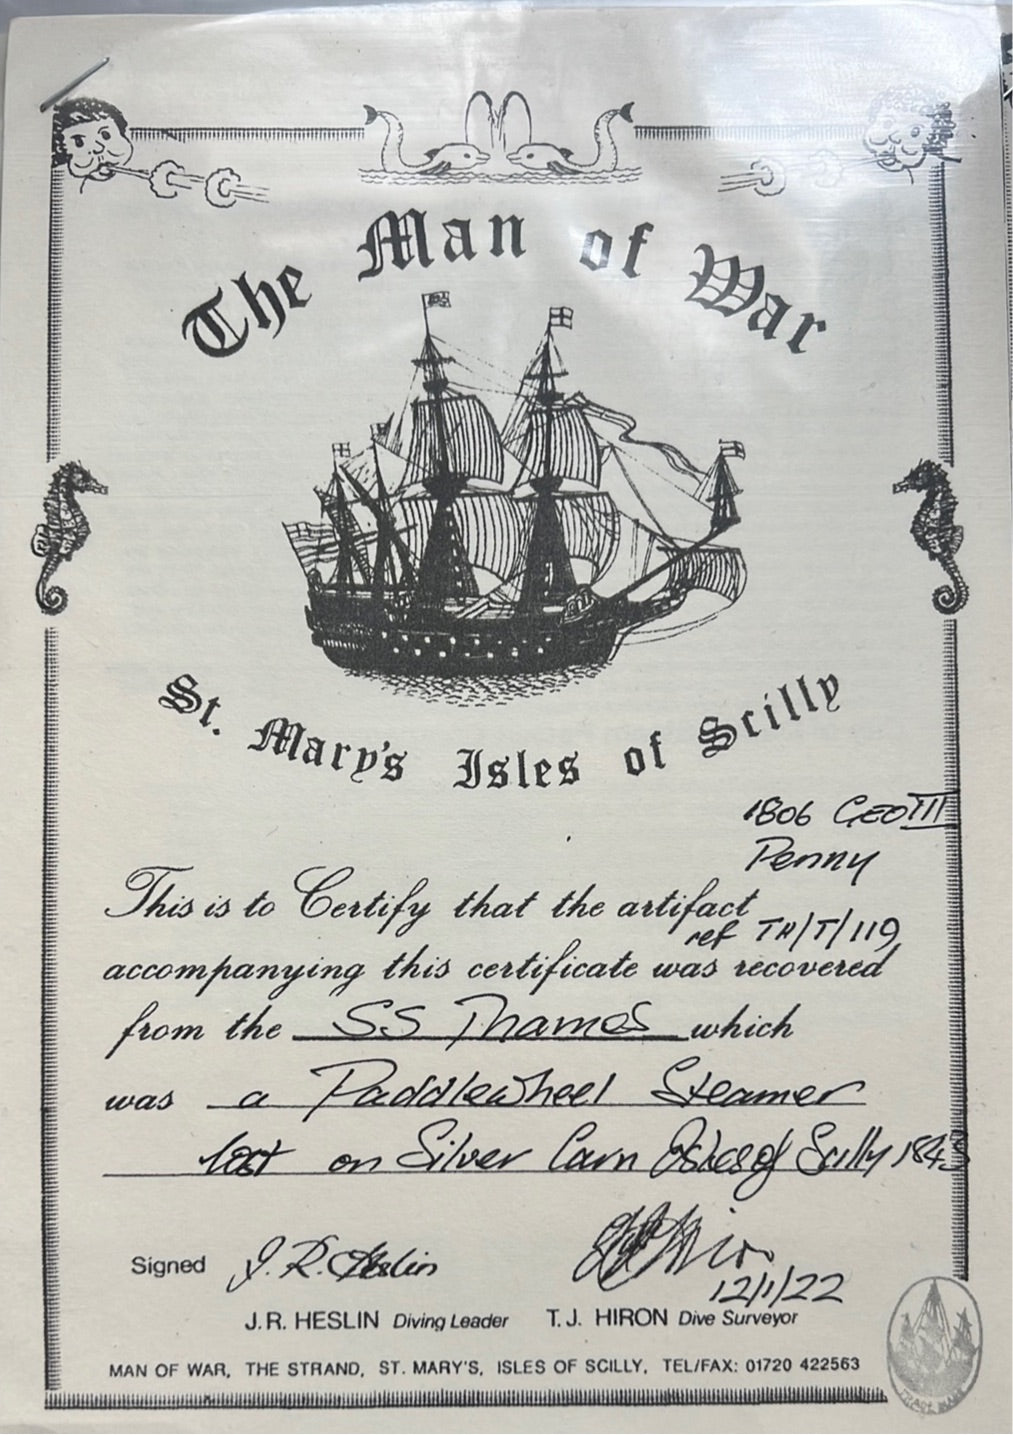 The Man of War
St. Mary's Isles of Scilly
1806 GEO III
Penny
This is to Certify that the artifact
ref TH/T/119
accompanying this certificate was recovered
from the SS Thames which
was a Paddlewheel Steamer
lost on Silver Carn Isles of Scilly 1843
Signed J. R. Heslin
12/1/22
J.R. HESLIN Diving Leader T.J. HIRON Dive Surveyor
MAN OF WAR, THE STRAND, ST. MARY'S, ISLES OF SCILLY, TEL/FAX: 01720 422563
TRADE MARK